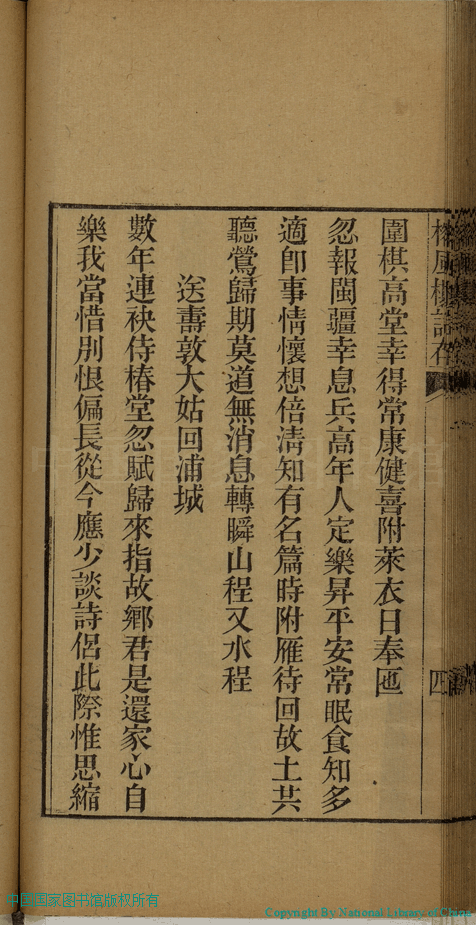 圍棋高堂幸得常康健喜附萊衣日奉匜
忽報閩疆幸息兵高年人定樂昇平安常眠食知多
適卽事情懷想倍淸知有名篇時附雁待回故土共
聽鶯歸期莫道無消息轉瞬山程又水程
送壽敦大姑回浦城
數年連袂侍椿堂忽賦歸來指故鄉君是還家心自
樂我當惜別恨偏長從今應少談詩侶此際惟思縮
四
中国国家图书馆版权所有
Copyright By National Library of China